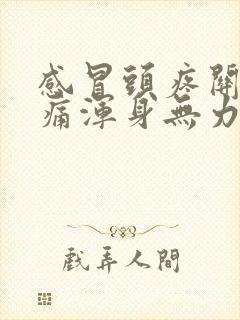 感冒頭疼關
痛渾身無力
戲弄人間